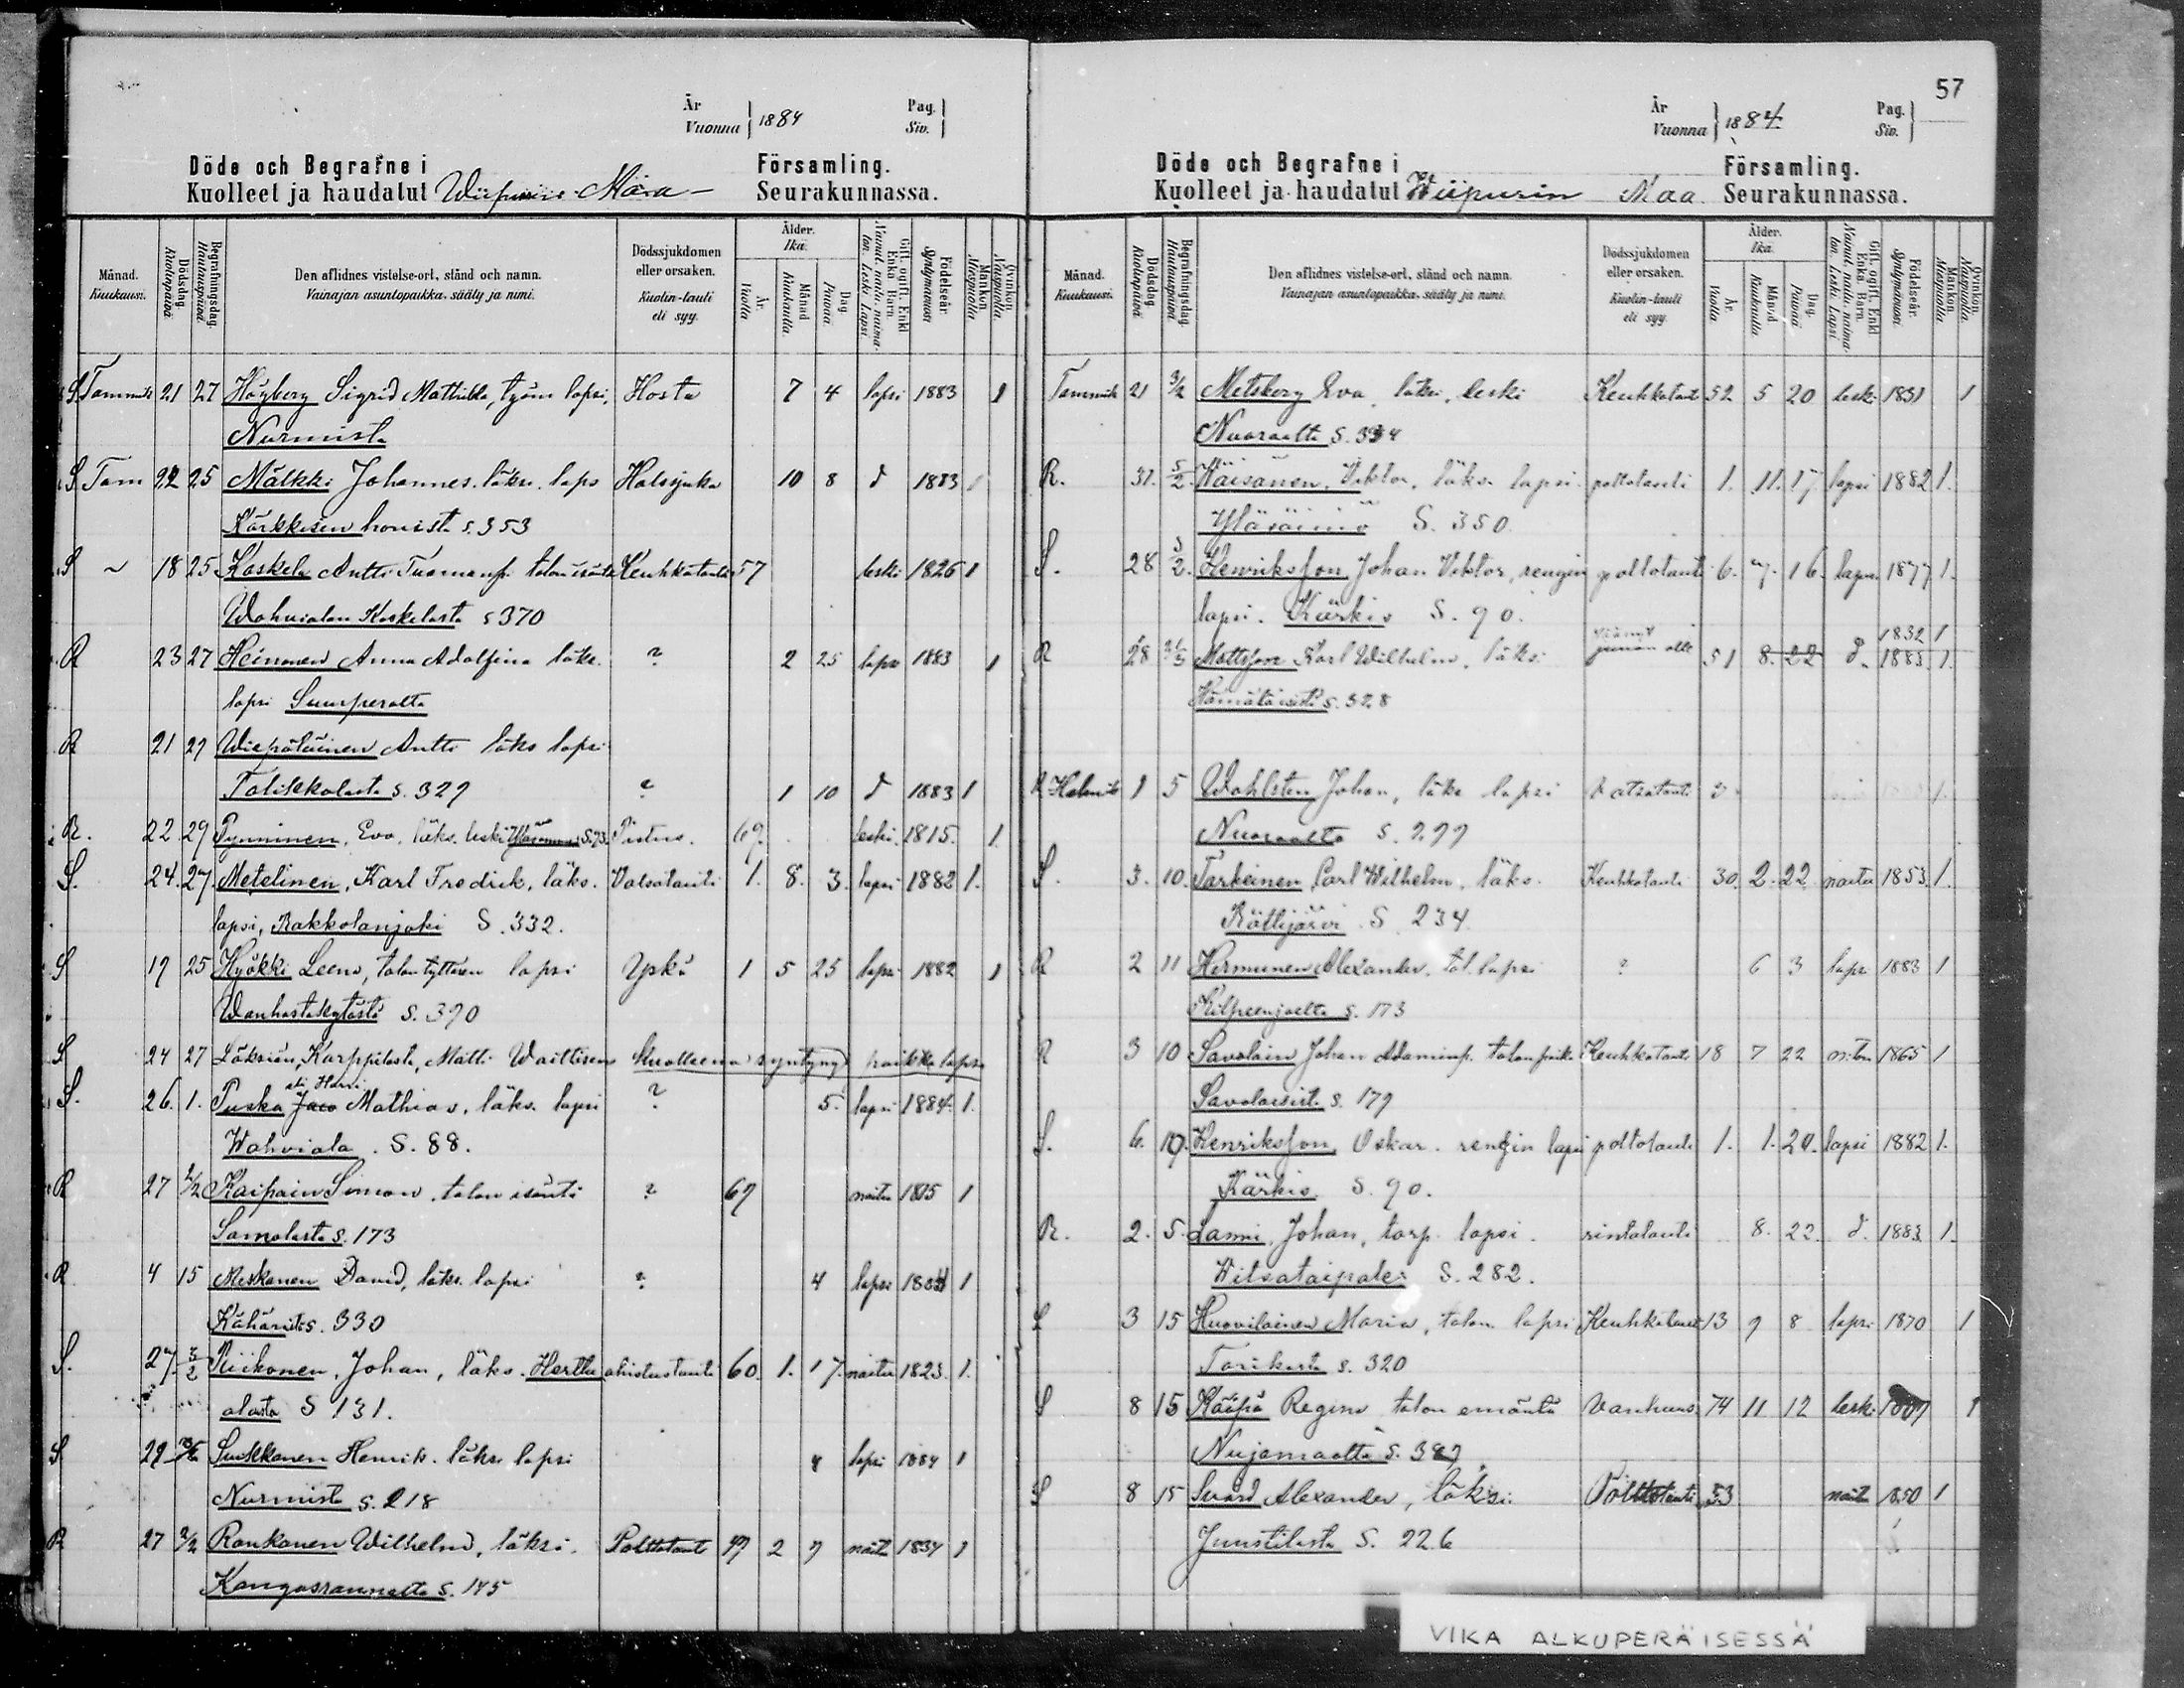 År
Vuonna } 1884
Pag.
Siv. }
Döde och Begrafne i Församling.
Kuolleet ja haudatut Wiipurin Maa Seurakunnassa.
Månad.
Kuukausi.
Dödsdag.
Kuolinpäivä.
Begrafningsdag.
Hautauspäivä.
Den aflidnes vistelse-ort, stånd och namn.
Vainajan asuntopaikka, sääty ja nimi.
Dödssjukdomen
eller orsaken.
Kuolin-tauti
eli syy.
Ålder.
Ikä.
År.
Vuotta
Månad
Kuukautta.
Dag.
Päivää.
Gift, ogift, Enkl
Enka, Barn.
Födelseår.
Syntymävuosi
Mankön
Miespuolia
Qvinkön.
Naispuolia.
S Tammik 21 27 Högberg Sigrid Mathilda, työm lapsi, Hosta 7 4 lapsi 1883 1
Nurmista
S Tam 22 25 Mälkki Johannes läks. laps Halssjuka 10 8 d 1883 1
Kärkkisen hovista s. 353
S ~ 18 25 Koskela Antti Tuomanp. talon isäntä Keuhkotauti 57 leski 1826 1
Wahvialan Koskelasta s 370
R 23 27 Heinonen Anna Adolfina läks. ? 2 25 laps 1883 1
lapsi Suurperolta
R 21 27 Wiepäläinen Antti läks lapsi
Talikkalasta s. 329 ? 1 10 d 1883 1
R. 22 29 Pynninen, Eva, läks. leski S. 73. Pistus. 69. leski. 1815. 1.
S. 24. 27. Metelinen, Karl Fredrik, läks. Vatsatauti 1. 8. 3. lapsi 1882 1.
lapsi, Rakkolanjoki S. 332.
S 19 25 Hyökki Leena, talon tyttären lapsi Yskä 1 5 25 lapsi 1882 1
Wanhastakylästä s. 390
S 24 27 Läksiän, Karppilasta, Matti Waittisen kuolleena syntynyt poikka lapsi
eli Harvi
S. 26. 1. Puska Jaco Mathias, läks. lapsi ? 5. lapsi 1884. 1.
Wahviala. S. 88.
R 27 2/2 Kaipain Simon, talon isäntä ? 69 naitu 1815 1
Samolasta s. 173
R 4 15 Meskanen David, läks. lapsi ? 4 lapsi 1884 1
Käháritä s. 330
S. 27. 3/2 Piikonen, Johan, läks. Herttu ahistustauti 60. 1. 17. naitu 1823. 1.
alasta S 131.
S 29 Suikkanen Henrik. läks. lapsi 4 lapsi 1884 1
Nurmista s. 218
R 27 2/2 Ronkanen Wilhelm, läksi. Polttotaut 49 2 9 nait 1834 1
Kangasrannalta s. 145
57
År
Vuonna } 1884.
Pag.
Siv. }
Döde och Begrafne i Församling.
Kuolleet ja haudatut Wiipurin Maa Seurakunnassa.
Månad.
Kuukausi.
Dödsdag
Kuolinpäivä.
Begrafningsdag.
Hautauspäivä.
Den aflidnes vistelse-ort, stånd och namn.
Vainajan asuntopaikka, sääty ja nimi.
Dödssjukdomen
eller orsaken.
Kuolin-tauti
eli syy
Ålder.
Ikä.
År.
Vuotta
Månad
Kuukautta.
Dag.
Päivää
Gift, ogift, Enkl
Enka, Barn.
Födelseår.
Syntymävuosi.
Mankön.
Miespuolia
Qvinkön.
Naispuolia.
Tammik 21 3/2 Metsberg Eva, läksi, leski Keuhkotaut 52 5 20 leski 1831 1
Nuoraalta s. 334
R. 31. 5/2. Häisänen, Viktor, läks. lapsi. polttotauti 1. 11. 17. lapsi 1882 1.
Yläsäiniö S. 350.
S. 28 3/2. Henriksson Johan Viktor, rengin polttotauti 6. 7. 16. lapsi. 1877 1.
lapsi. Kärkis S. 90.
1832 1
R 28 Mattsson Karl Wilhelm, läksi junan alle 51 8. 22 d. 1883 1.
Hämäläisistä s. 328
R Helmik 1 5 Wahlsten Johan, läks lapsi Vatsatauti 3 1.
Nuoraalta s. 299
S. 3. 10. Tarkeinen, Carl Wilhelm, läks. Keuhkotauti 30. 2. 22 naitu 1853. 1.
Rättijärvi S. 234.
R 2 11 Hermunen Alexander, tal. lapsi ? 6 3 laps 1883 1
Kilpeenjoelta s. 173
R 3 10 Savolain Johan Adaminp. talon poika Keuhkotauti 18 7 22 1865 1
Savolaisist. s. 179
S. 6. 19. Henriksson, Oskar. rengin lapsi polttotauti 1. 1. 20. lapsi 1882 1.
Kärkis. S. 90.
R. 2. 5. Lammi, Johan, torp. lapsi. rintatauti 8. 22. d. 1883 1.
Witsataipale. S. 282.
S 3 15 Huovilainen Maria, talon lapsi Keuhkotauti 13 9 8 lapsi 1870 1
Tarikasta s. 320
S 8 15 Kääpä Regina talon emäntä Vanhuus 74 11 12 leski 1
Nujamaalta s.
S 8 15 Svärd Alexander, läksi Polttotauti 53 nait 1850 1
Juustilasta S. 226
VIKA ALKUPERÄISESSÄ